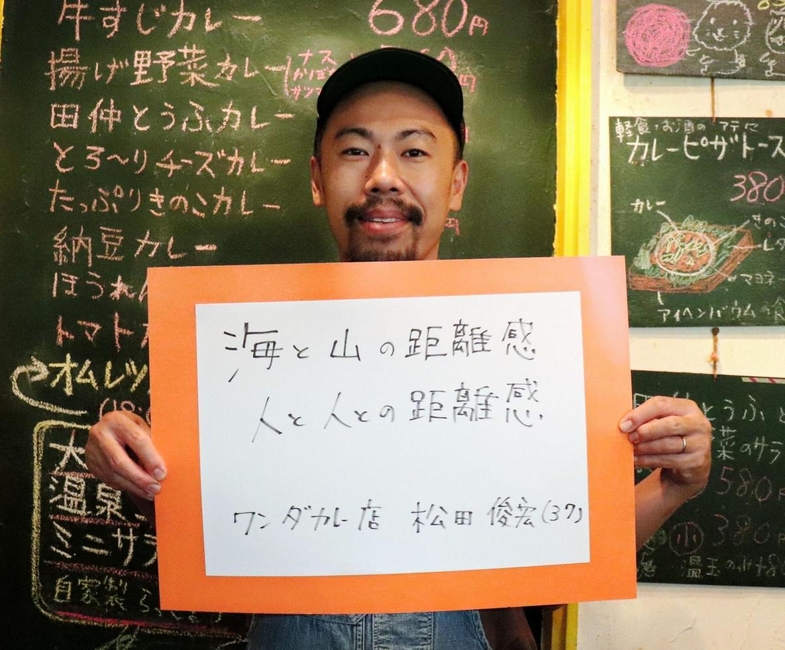 牛すじカレー 680円
揚げ野菜カレー
ナス
かぼちゃ
田仲とうふカレー
とろ〜りチーズカレー
たっぷりきのこカレー
納豆カレー
ほうれん
トマト
オムレツ
大
温泉
ミニサラ
自家製
海と山の距離感
人と人との距離感
ワンダカレー店 松田 俊宏(37)
軽食・お酒のアテに
カレーピザトース
380
カレー
マヨネー
アイヘンバウムの食
とうふ
菜のサラ
580円
小 380円
温玉のせ+80